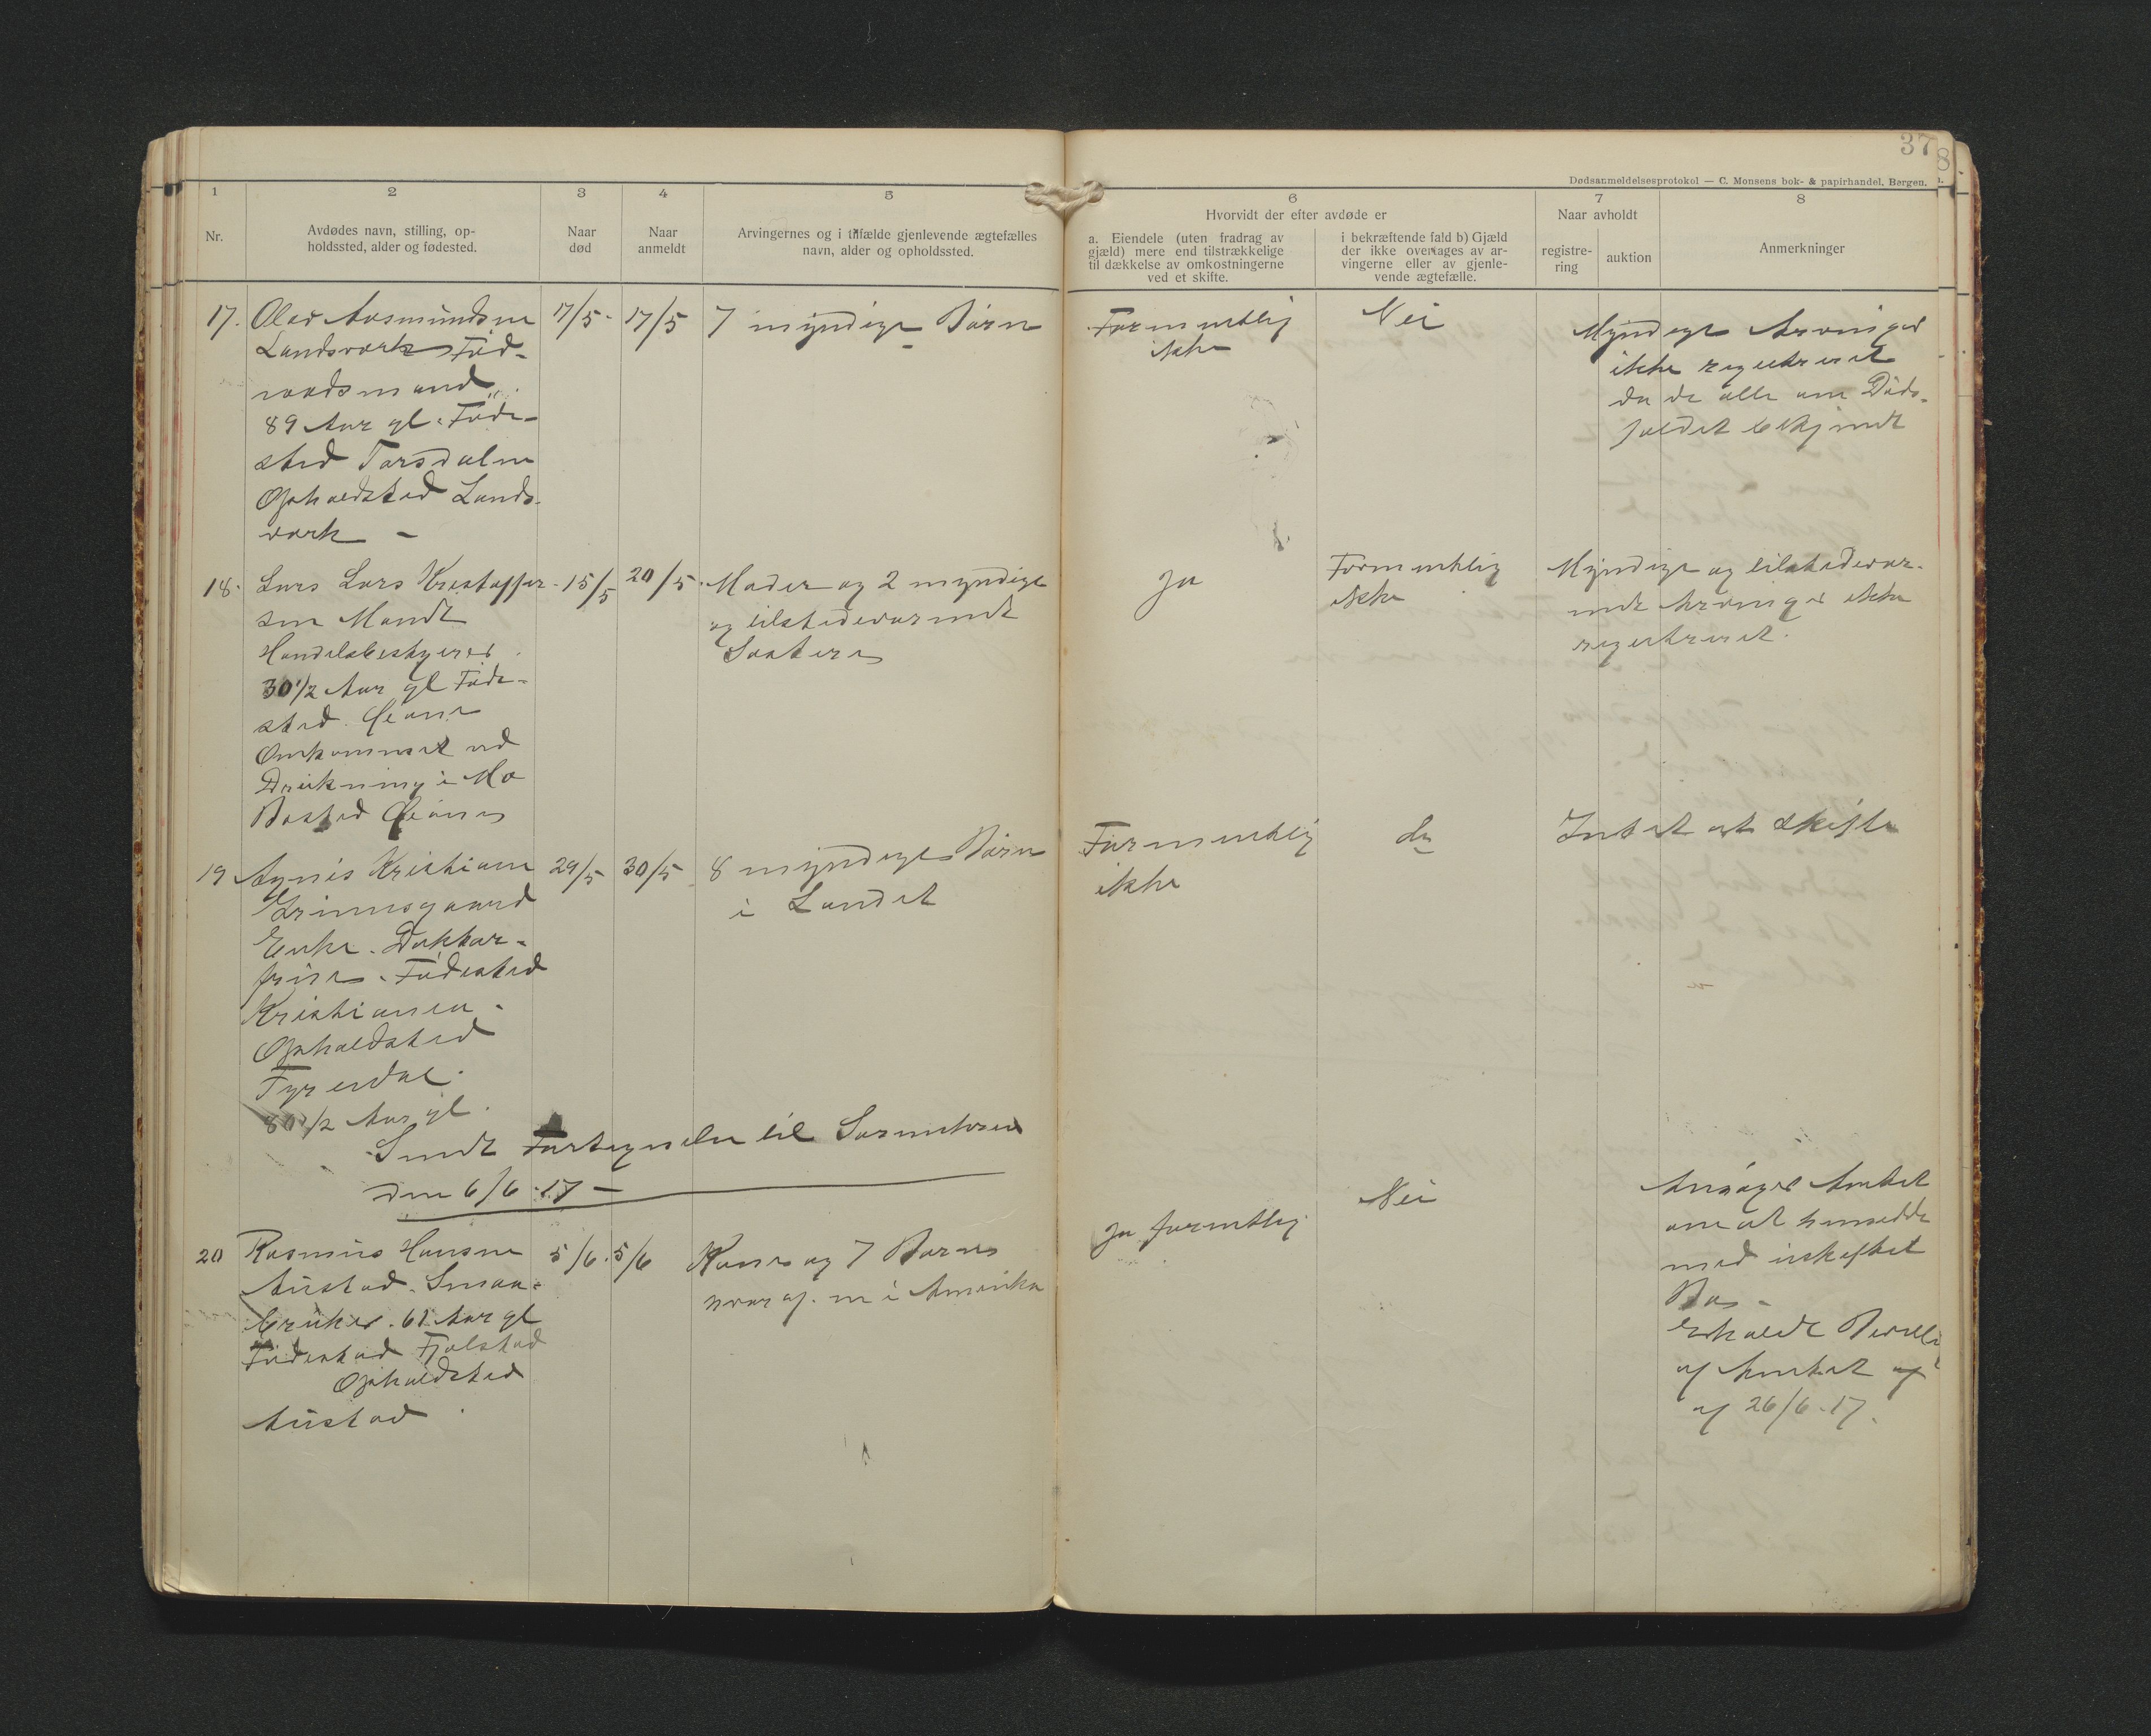 37
Dødsanmeldelsesprotokol — C. Monsens bok- & papirhandel, Bergen.
1 2 3 4 5 6 7 8
Nr.
Avdødes navn, stilling, op-
holdssted, alder og fødested.
Naar
død
Naar
anmeldt
Arvingernes og i tilfælde gjenlevende ægtefælles
navn, alder og opholdssted.
Hvorvidt der efter avdøde er
a. Eiendele (uten fradrag av
gjæld) mere end tilstrækkelige
til dækkelse av omkostningerne
ved et skifte.
i bekræftende fald b) Gjæld
der ikke overtages av ar-
vingerne eller av gjenle-
vende ægtefælle.
Naar avholdt
registre-
ring
auktion
Anmerkninger
17.
Olav Aasmundsen
Landsverk Fød-
raadsmand
89 Aar gl. Føde-
sted Torsdalen
Opholdsted Lands-
verk –
17/5
17/5
7 myndige Børn
Formentlig
ikke
Nei
Myndige Arvinger
ikke registreret
da de alle om Døds-
faldet bekjendt
18.
Lars Lars Kristoffer-
sen Mandt
Handelsbestyrer
30 1/2 Aar gl Føde-
sted
Omkommet ved
Drukning i Mo
Bosted
15/5
20/5
Moder og 2 myndige
og tilstedeværende
Søstere
Ja
Formentlig
ikke
Myndige og tilstedevær-
ende Arvinger ikke
registreret.
19
Agnes Kristiane
Grimsgaard
Enke. Doktor-
frue. Fødested
Kristiansen.
Opholdsted
Fyresdal.
80 1/2 Aar gl.
29/5
30/5
8 myndige Børn
i Landet
Formentlig
ikke
do
Intet at skifte
Sendt Fortegnelse til Sorenskriveren
den 6/6 17 –
20
Rasmus Hansen
Austad. Smaa-
bruker. 61 Aar gl
Fødested Fjalstad
Opholdsted
Austad
5/6
5/6
Kone og 7 Børn
hvoraf en i Amerika
Ja formentlig
Nei
Ansøger Amtet
om at hensidde
med uskiftet
Bo –
Erholdt Bevilli
af Amtet af
af 26/6-17.